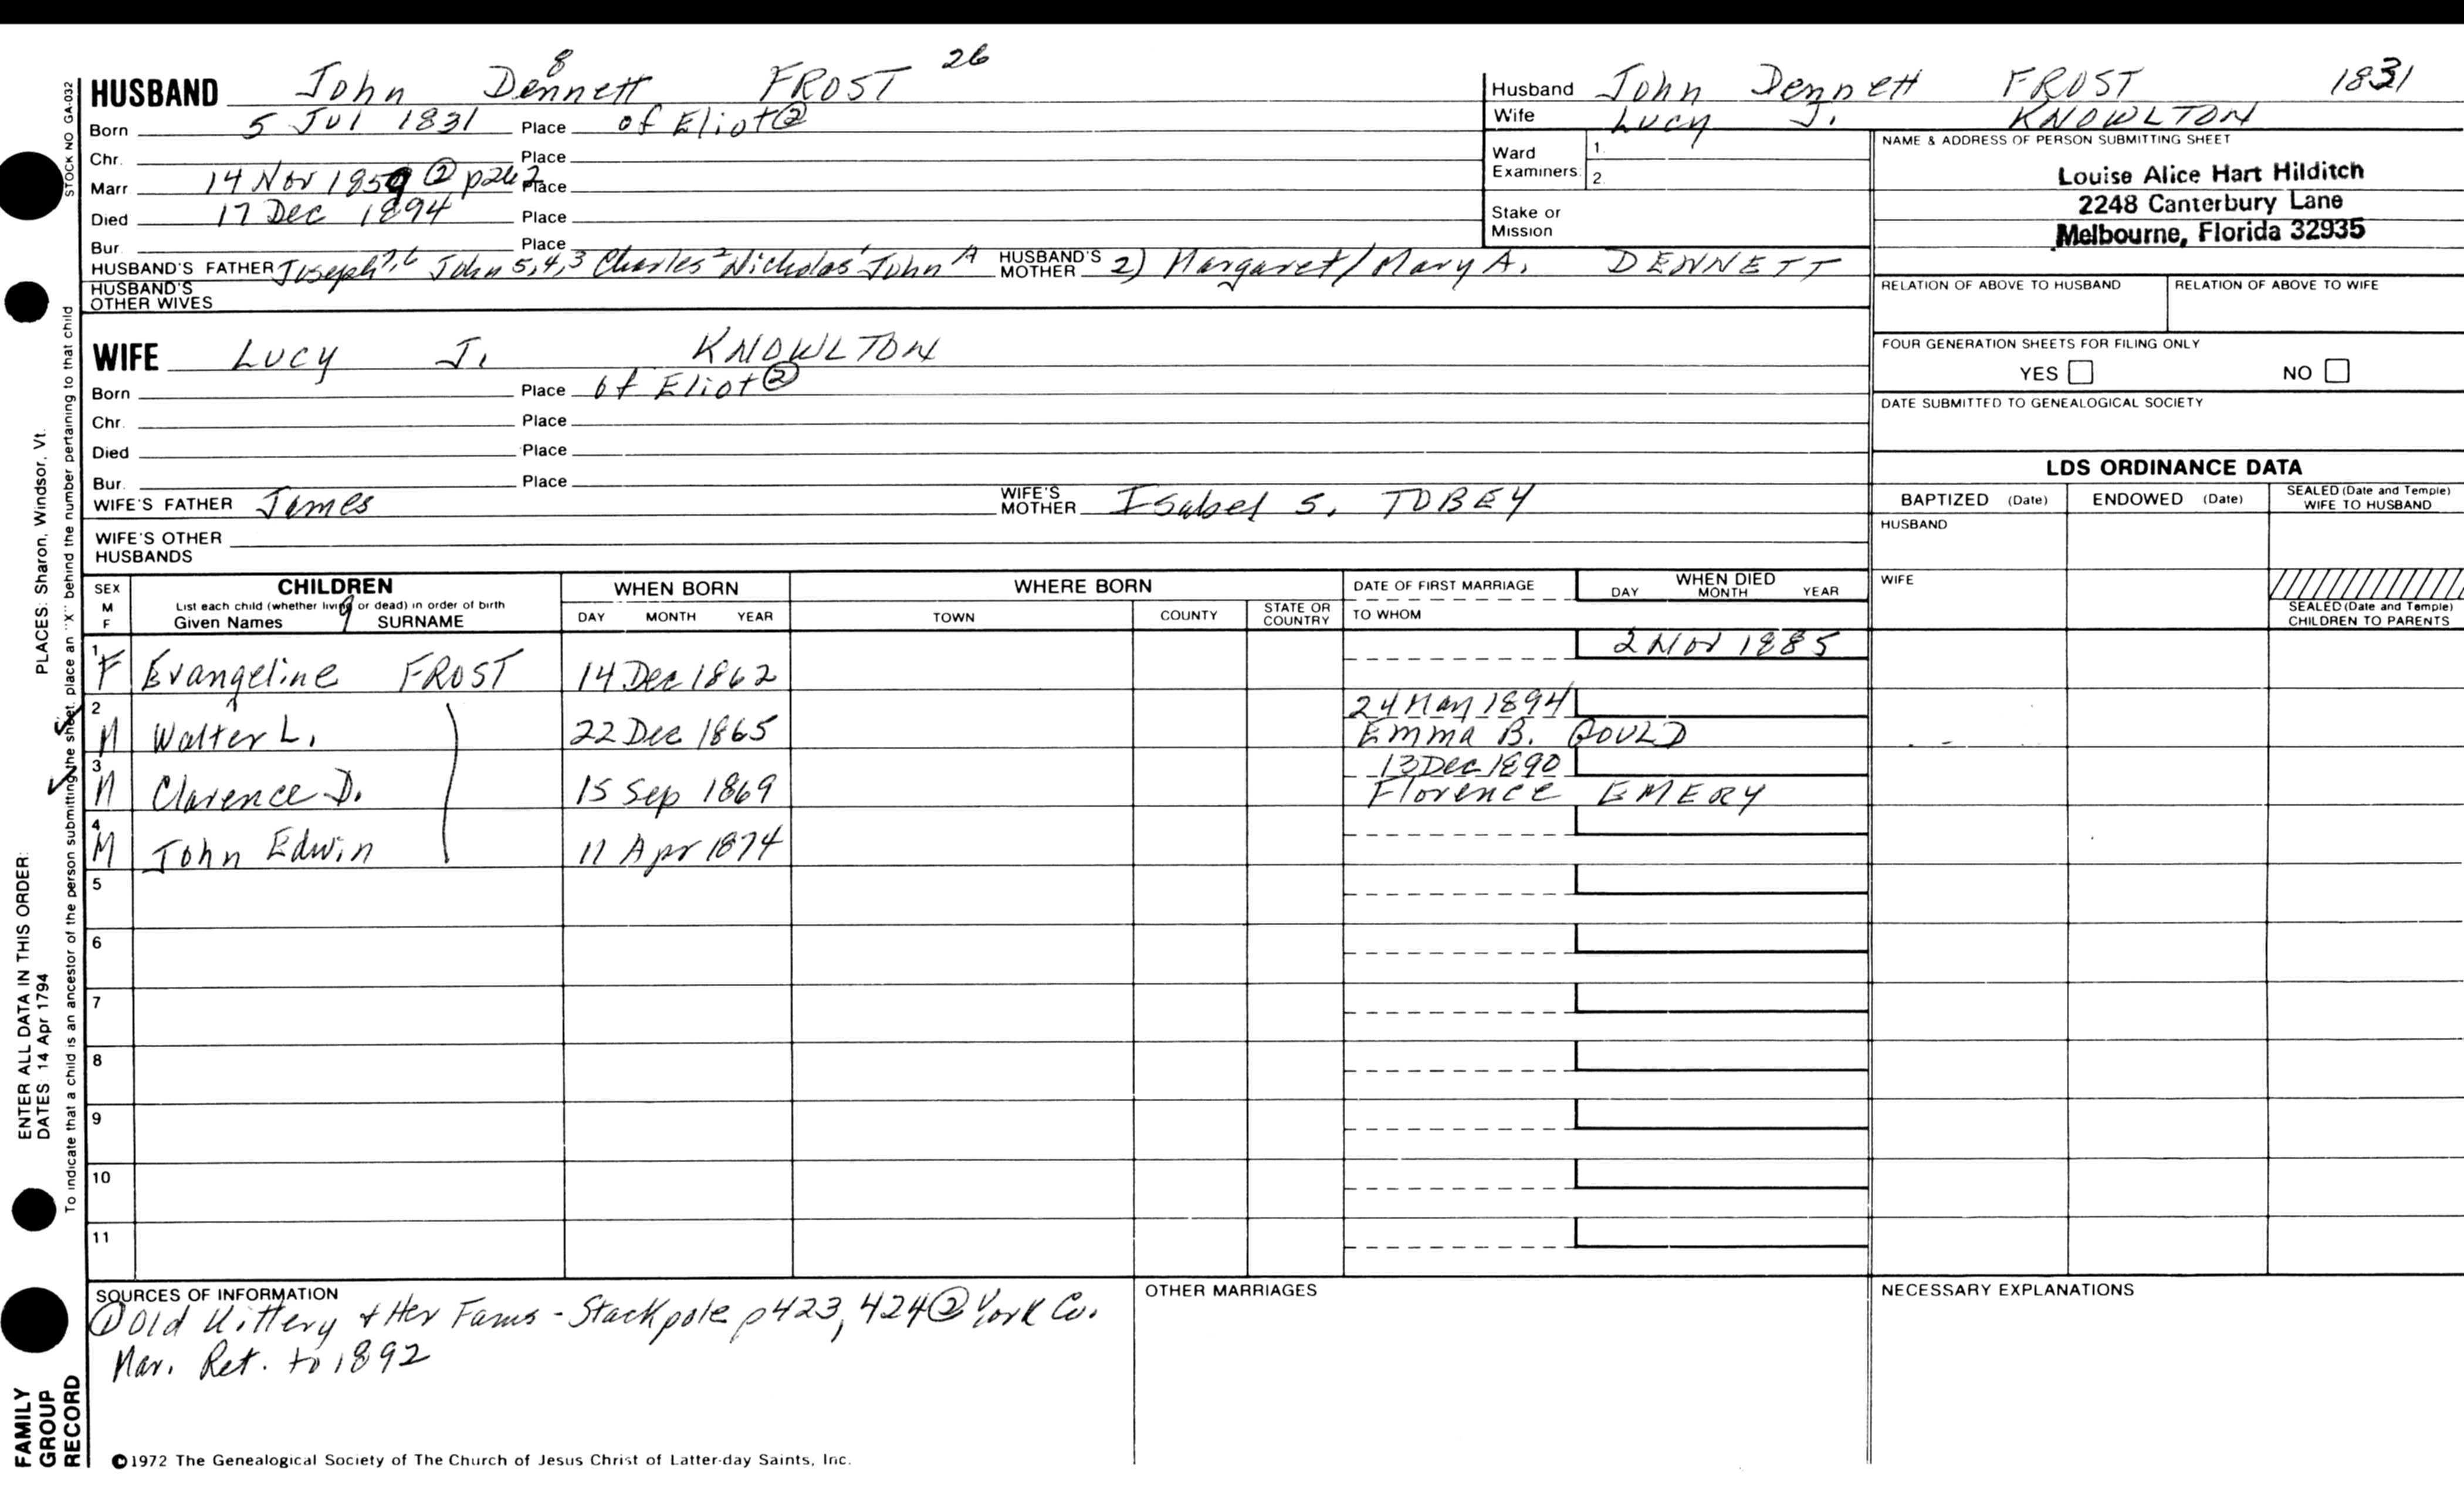 HUSBAND John Dennett 8 FROST 26
Born 5 Jul 1831 Place of Eliot ②
Chr. Place
Marr. 14 Nov 1859 ② p262 Place
Died 17 Dec 1894 Place
Bur. Place
HUSBAND'S FATHER Joseph 7,6 John 5,4,3 Charles 2 Nicholas 1 John A HUSBAND'S MOTHER 2) Margaret/Mary A. DENNETT
HUSBAND'S OTHER WIVES
WIFE Lucy J. KNOWLTON
Born Place of Eliot ②
Chr. Place
Died Place
Bur. Place
WIFE'S FATHER James WIFE'S MOTHER Isabel S. TOBEY
WIFE'S OTHER HUSBANDS
Husband John Dennett FROST 1831
Wife Lucy J. KNOWLTON
Ward Examiners 1.
2.
Stake or Mission
NAME & ADDRESS OF PERSON SUBMITTING SHEET
Louise Alice Hart Hilditch
2248 Canterbury Lane
Melbourne, Florida 32935
RELATION OF ABOVE TO HUSBAND RELATION OF ABOVE TO WIFE
FOUR GENERATION SHEETS FOR FILING ONLY
YES NO
DATE SUBMITTED TO GENEALOGICAL SOCIETY
LDS ORDINANCE DATA
BAPTIZED (Date) ENDOWED (Date) SEALED (Date and Temple) WIFE TO HUSBAND
HUSBAND
WIFE
SEALED (Date and Temple) CHILDREN TO PARENTS
SEX M F CHILDREN WHEN BORN WHERE BORN DATE OF FIRST MARRIAGE WHEN DIED
List each child (whether living or dead) in order of birth
Given Names SURNAME DAY MONTH YEAR TOWN COUNTY STATE OR COUNTRY TO WHOM DAY MONTH YEAR
1 F Evangeline FROST 14 Dec 1862 2 Nov 1885
2 M Walter L. 22 Dec 1865 24 May 1894
Emma B. GOULD
3 M Clarence D. 15 Sep 1869 13 Dec 1890
Florence EMERY
4 M John Edwin 11 Apr 1874
5
6
7
8
9
10
11
SOURCES OF INFORMATION
① Old Kittery & Her Fams - Stackpole p423, 424 ② York Co.
Mar. Ret. to 1892
OTHER MARRIAGES
NECESSARY EXPLANATIONS
©1972 The Genealogical Society of The Church of Jesus Christ of Latter-day Saints, Inc.
STOCK NO GA-032
PLACES: Sharon, Windsor, Vt.
To indicate that a child is an ancestor of the person submitting the sheet, place an "X" behind the number pertaining to that child
ENTER ALL DATA IN THIS ORDER:
DATES 14 Apr 1794
FAMILY
GROUP
RECORD